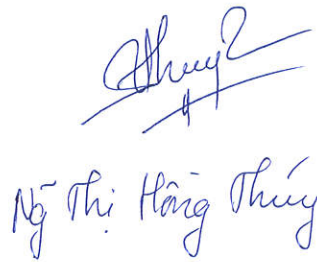 Thuý
Ng̃ Thị Hồng Thúy